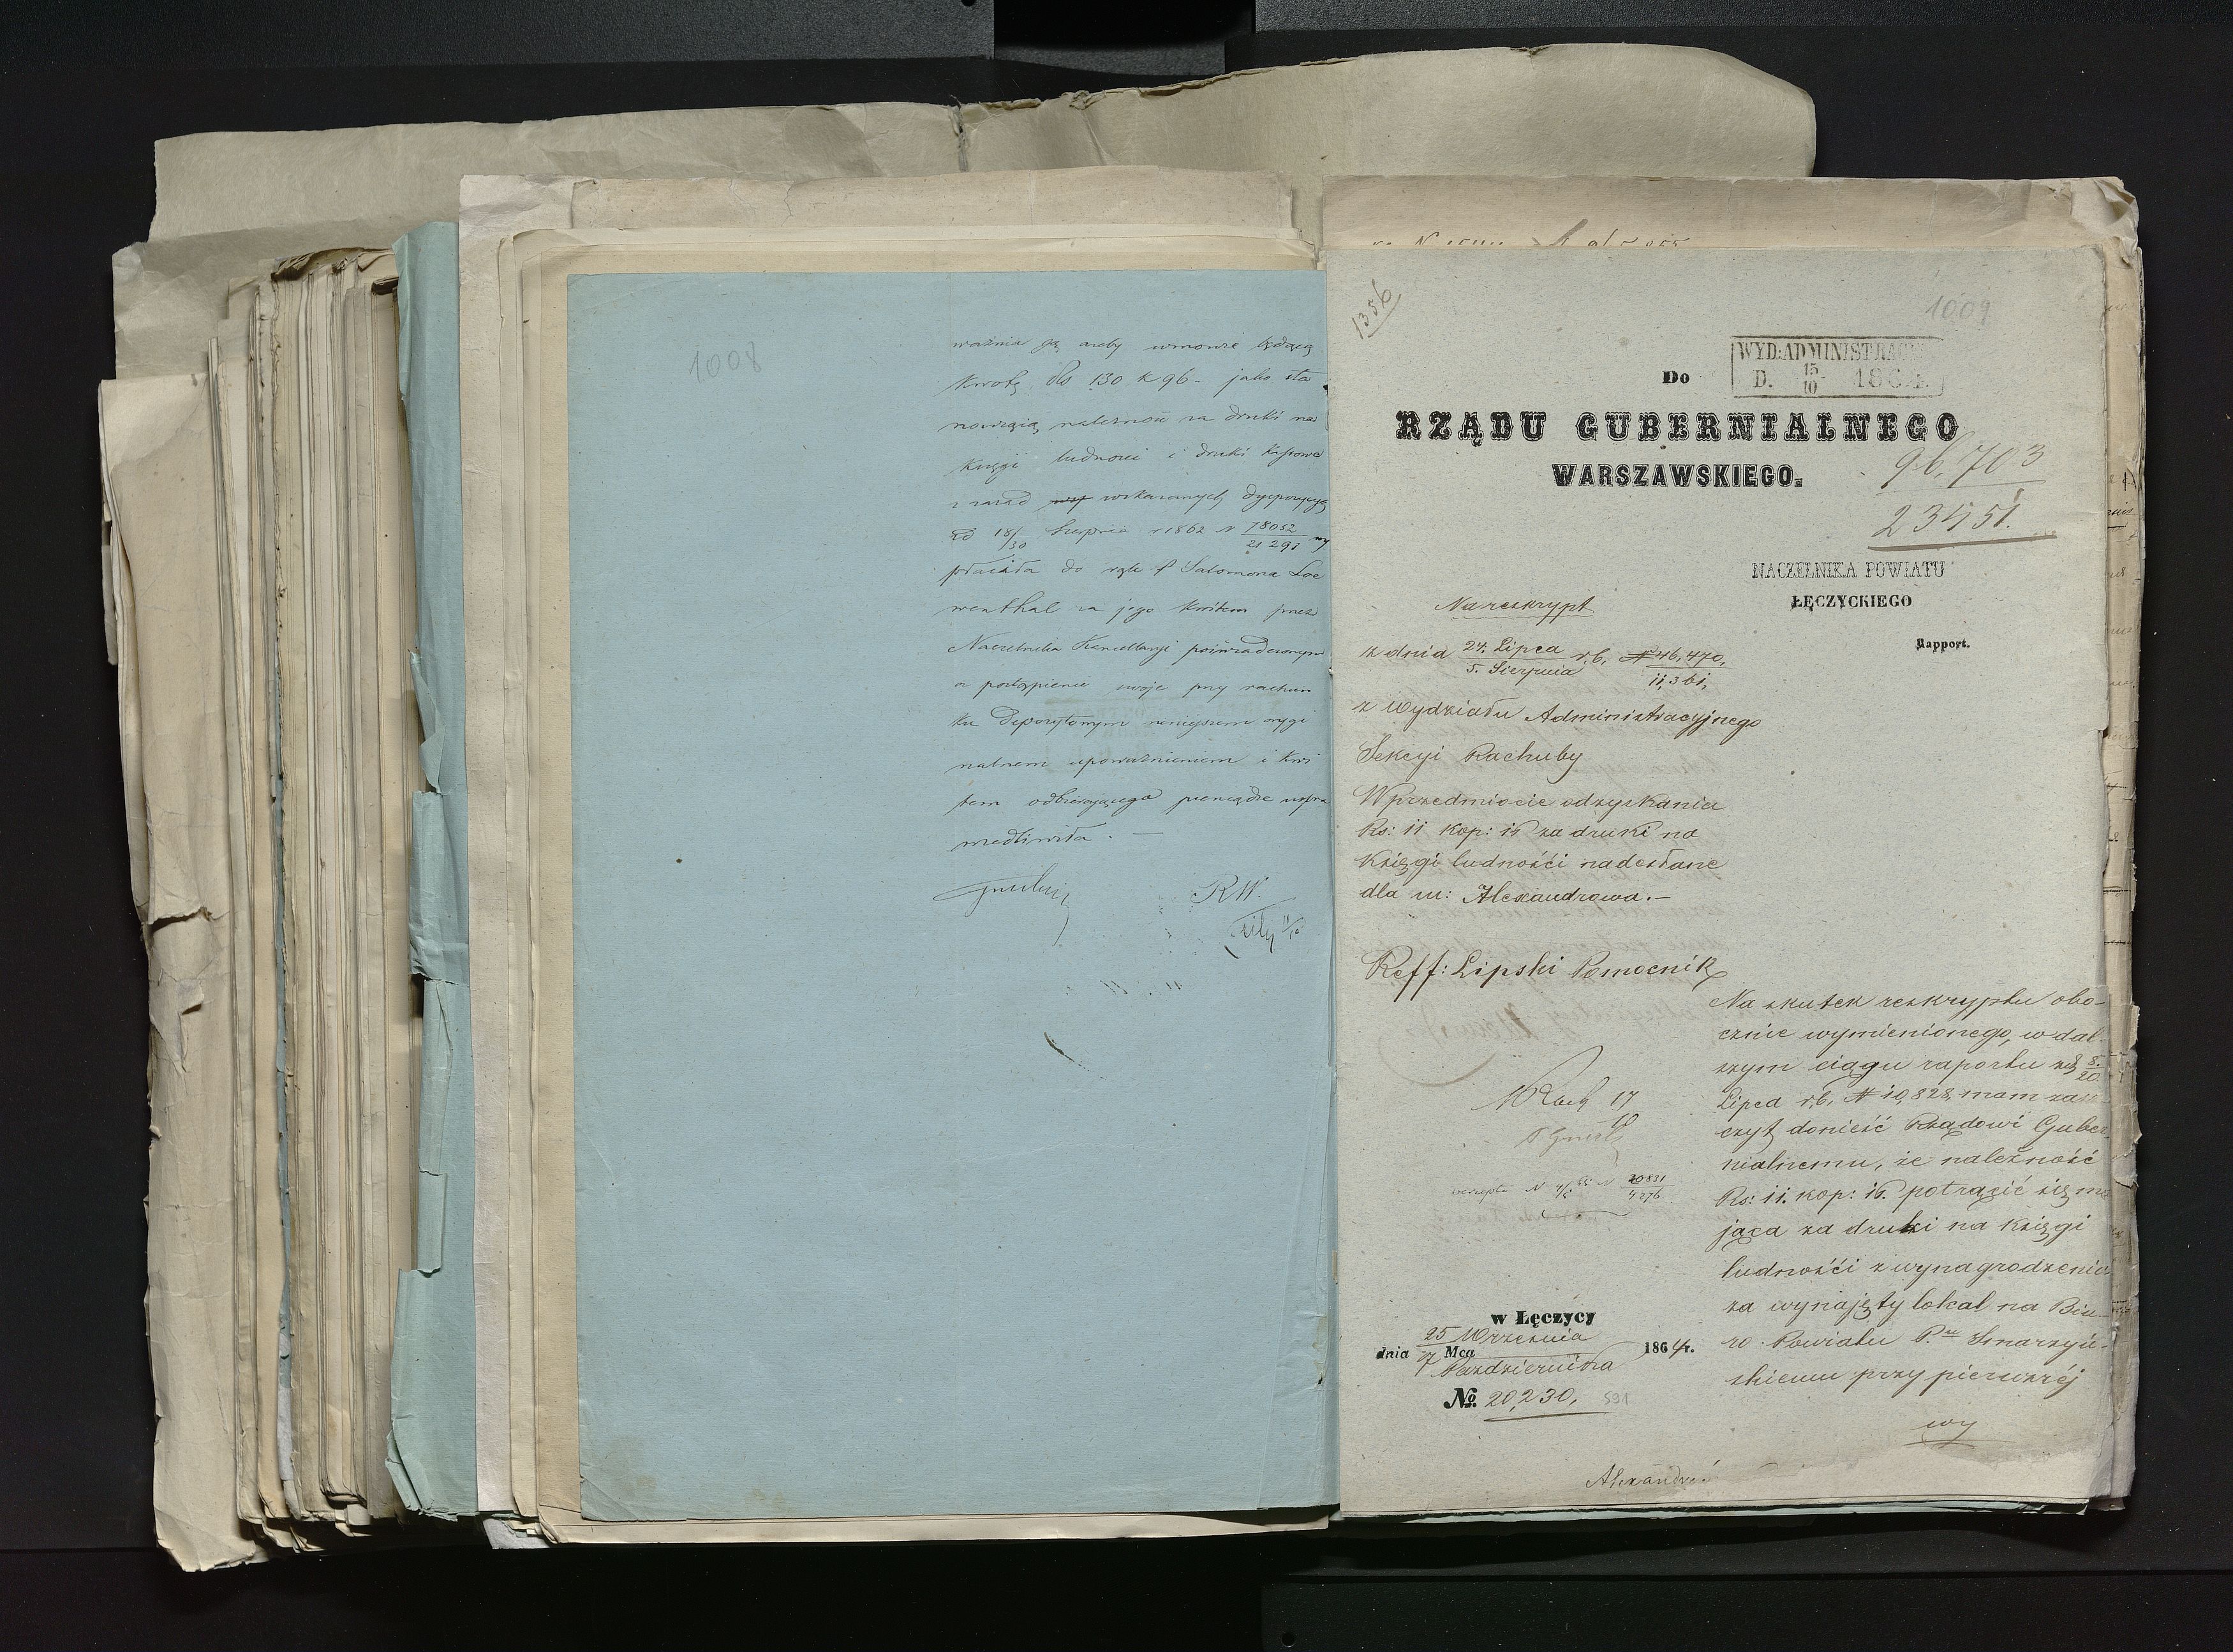 1008
ważnia ją ażeby w mowie będącą
kwotę Rs 130 k 96 - jako sta
nowiącą należność za druki na
księgi ludności i druki
z zasad wskazanych dyspozycyą
z d 18/30 Sierpnia r 1862 N 78052/21291 wy
płaciła do rąk P Salomona Loe
wenthal za jego kwitem przez
Naczelnika Kancellaryi poświadczonym
a postąpienie swoje przy rachun
ku Depozytowym niniejszem orygi
nalnem upoważnieniem i kwi
tem odbierającego pieniądze uspra
wiedliwiła. —
RW.
11/10
1356
1009
WYD: ADMINISTRAC
D. 15/10 1864.
Do
RZĄDU GUBERNIALNEGO
WARSZAWSKIEGO.
96,703
23451.
NACZELNIKA POWIATU
ŁĘCZYCKIEGO
Rapport.
Na reskrypt
z dnia 24. Lipca/5. Sierpnia r.b. N 46,470,/11,361,
z Wydziału Administracyjnego
Sekcyi Rachuby
W przedmiocie odzyskania
Rs: 11 kop: 15 za druki na
Księgi ludności nadesłane
dla m: Alexandrowa.-
Reff: Lipski Pomocnik
Na skutek reskryptu obo-
cznie wymienionego, w dal-
szym ciągu raportu z d 8/20
Lipca r.b. N 10,828, mam zasz
czyt donieść Rządowi Guber
nialnemu, że należność
Rs: 11. kop: 15. potrącić się ma
jąca za druki na księgi
ludności z wynagrodzenia
za wynajęty lokal na Biu-
ro Powiatu P. Smarzyń-
skiemu przy pierwszéj
wy
17
10
N 20831/4276
w Łęczycy
dnia 25 Września/7 Października Mca 1864 r.
No. 20,230, 591